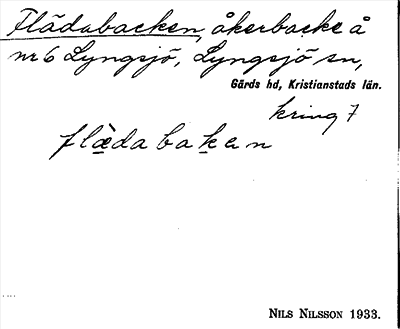 Flädabacken, åkerbacke å
nr 6 Lyngsjö, Lyngsjö sn,
Gärds hd, Kristianstads län.
kring 7
flæ̀da bak̲en
NILS NILSSON 1933.